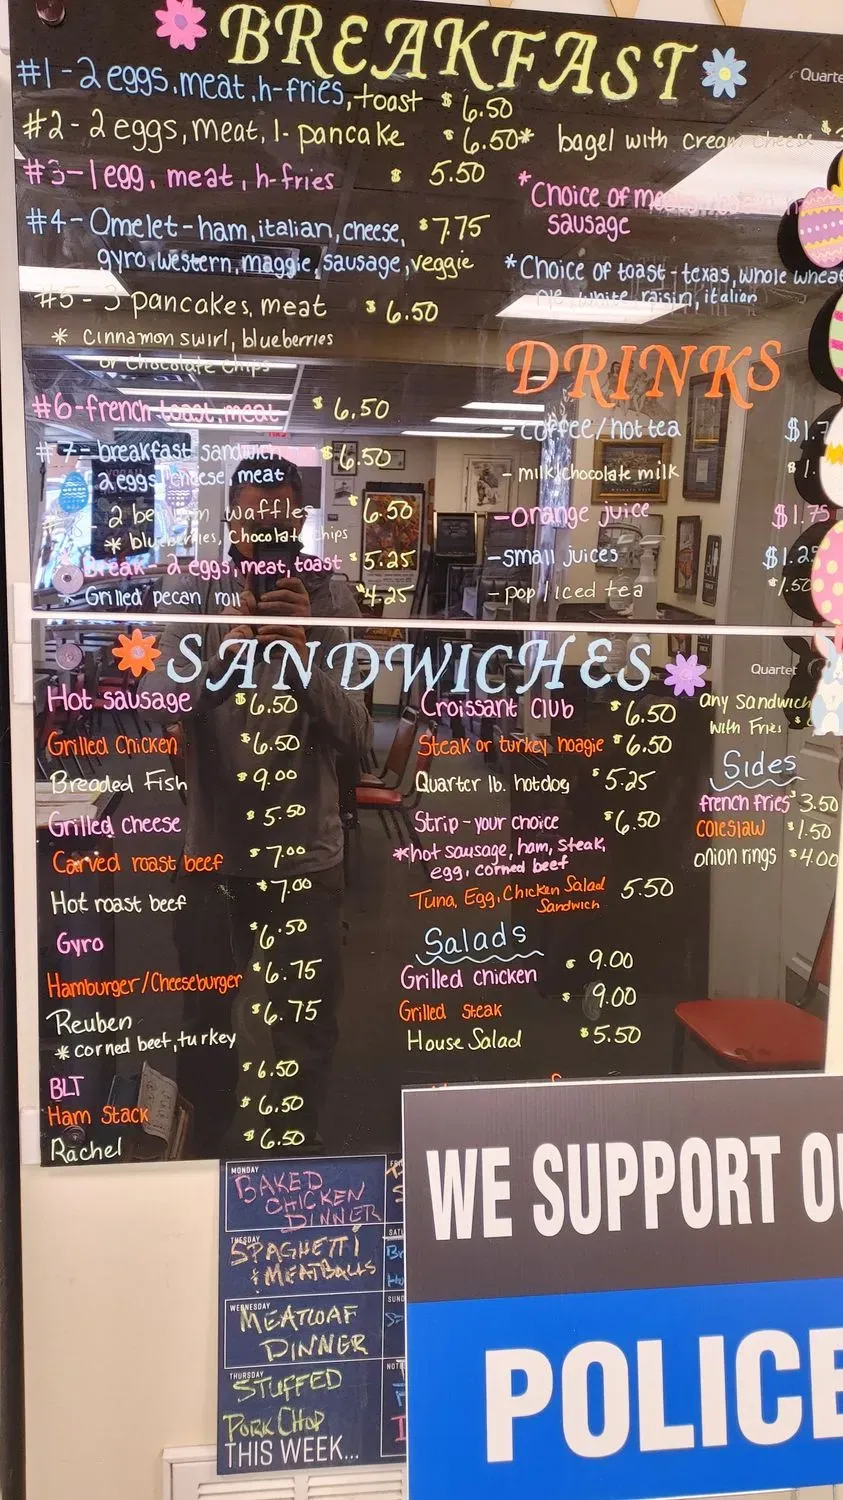 BREAKFAST
Quarte
#1-2 eggs, meat, h-fries, toast $6.50
#2-2 eggs, meat, 1-pancake $6.50
* bagel with cream cheese $
#3-1 egg, meat, h-fries $5.50
*Choice of
sausage
#4-Omelet-ham, italian, cheese, $7.75
gyro, western, maggie, sausage, veggie
*Choice of toast-texas, whole whea
rye, white, raisin, italian
#5-3 pancakes, meat $6.50
* cinnamon swirl, blueberries
or chocolate chips
#6-french toast, meat $6.50
#7-breakfast sandwich $6.50
2 eggs, cheese, meat
2 waffles 6.50
* blueberries, Chocolate chips
Break-2 eggs, meat, toast $5.25
* Grilled pecan roll $4.25
DRINKS
-coffee/hot tea $1.7
-milk/chocolate milk $1.
-orange juice $1.75
-small juices $1.25
-pop/iced tea $1.50
SANDWICHES
Quartet
Hot sausage $6.50
Grilled Chicken $6.50
Breaded Fish $9.00
Grilled cheese $5.50
Carved roast beef $7.00
Hot roast beef $7.00
Gyro $6.50
Hamburger/Cheeseburger $6.75
Reuben $6.75
*corned beef, turkey
BLT $6.50
Ham Stack $6.50
Rachel $6.50
Croissant Club $6.50
Steak or turkey hoagie $6.50
Quarter lb. hotdog $5.25
Strip-your choice $6.50
*hot sausage, ham, steak,
egg, corned beef
Tuna, Egg, Chicken Salad 5.50
Sandwich
Salads
Grilled chicken $9.00
Grilled steak $9.00
House Salad $5.50
any Sandwich
with Fries $
Sides
french fries $3.50
coleslaw $1.50
onion rings $4.00
MONDAY
BAKED
CHICKEN
DINNER
TUESDAY
SPAGHETTI
& MEATBALLS
WEDNESDAY
MEATLOAF
DINNER
THURSDAY
STUFFED
PORK CHOP
THIS WEEK...
SUND
WE SUPPORT OU
POLICE